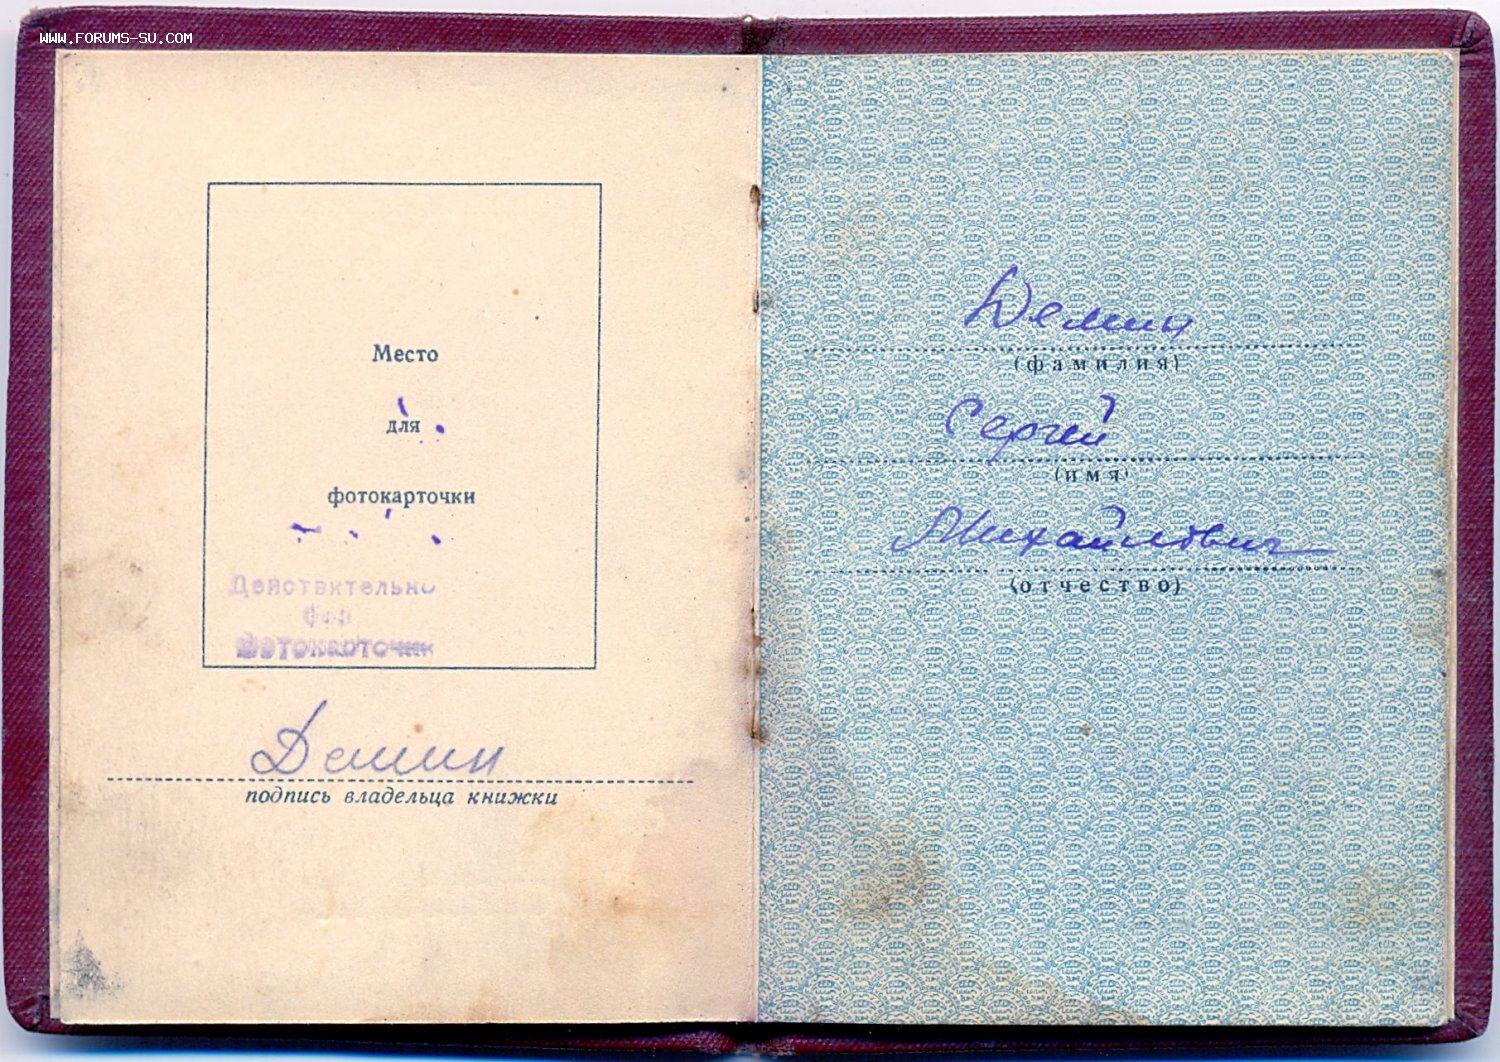 WWW.FORUMS-SU.COM
Место
для
фотокарточки
Действительно
без
Фотокарточки
Демин
подпись владельца книжки
Демин
(фамилия)
Сергей
(имя)
Михайлович
(отчество)